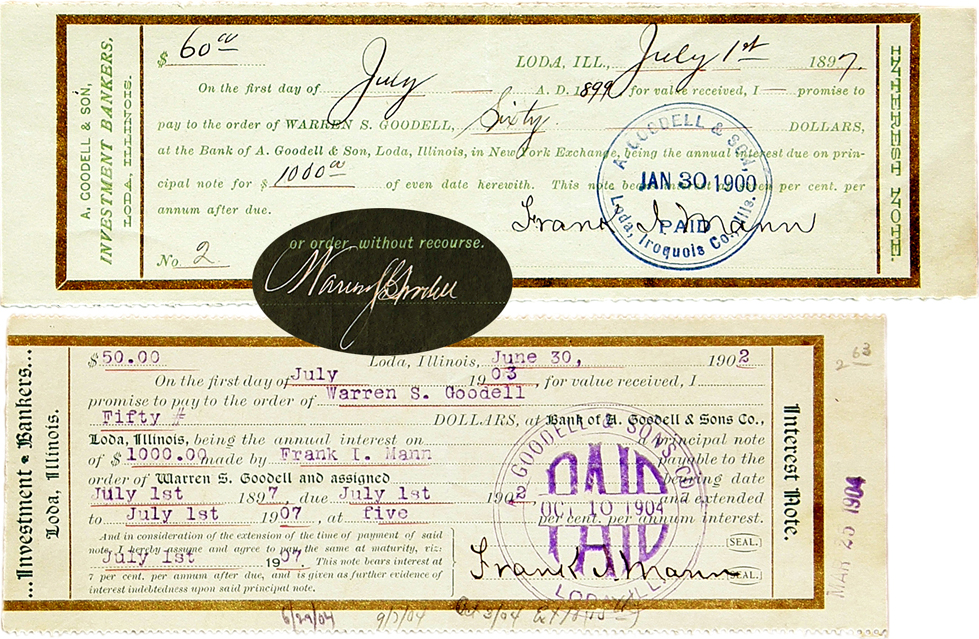 A. GOODELL & SON,
INVESTMENT BANKERS,
LODA, ILLINOIS.
$ 60 00
LODA, ILL., July 1st 1897.
On the first day of July A. D. 1899 for value received, I promise to
pay to the order of WARREN S. GOODELL, Sixty DOLLARS,
at the Bank of A. Goodell & Son, Loda, Illinois, in New York Exchange, being the annual interest due on prin-
cipal note for $ 1000 00 of even date herewith. This note bears interest at seven per cent. per
annum after due.
Frank I. Mann
No. 2
INTEREST NOTE.
A. GOODELL & SON,
JAN 30 1900
PAID
Loda, Iroquois Co., Ills.
or order without recourse.
Warren S Goodell
...Investment Bankers...
Loda, Illinois.
$50.00 Loda, Illinois, June 30, 1902
On the first day of July 1903, for value received, I
promise to pay to the order of Warren S. Goodell
Fifty # DOLLARS, at Bank of A. Goodell & Sons Co.,
Loda, Illinois, being the annual interest on principal note
of $1000.00 made by Frank I. Mann payable to the
order of Warren S. Goodell and assigned bearing date
July 1st 1897, due July 1st 1902 and extended
to July 1st 1907, at five per cent. per annum interest.
And in consideration of the extension of the time of payment of said
note, I hereby assume and agree to pay the same at maturity, viz:
July 1st 1907. This note bears interest at
7 per cent. per annum after due, and is given as further evidence of
interest indebtedness upon said principal note.
(SEAL.)
Frank I. Mann (SEAL.)
Interest Note.
A. GOODELL & SONS CO.
PAID
OCT 10 1904
LODA, ILL.
2 63
MAR 25 1904
6/29/04 9/5/04 Oct 3/04